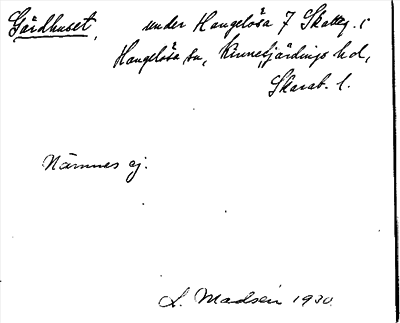 Gårdhuset, under Hangelösa 7 Skatteg. i
Hangelösa sn, Kinnefjärdings hd,
Skarab. l.
Nämnes ej.
L. Madsen 1930.